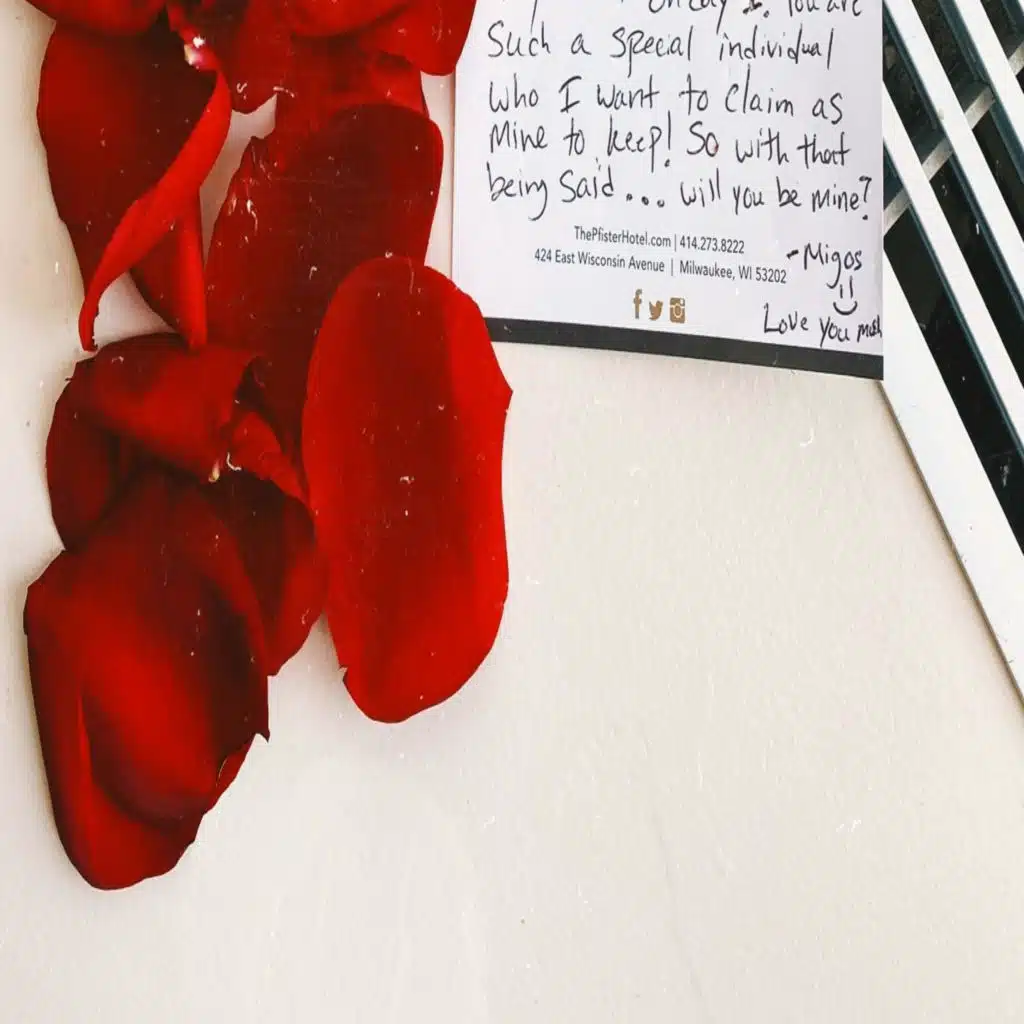 You are
Such a special individual
who I want to claim as
mine to keep! So with that
being said... will you be mine?
ThePfisterHotel.com | 414.273.8222
424 East Wisconsin Avenue | Milwaukee, WI 53202
-Migos
Love you